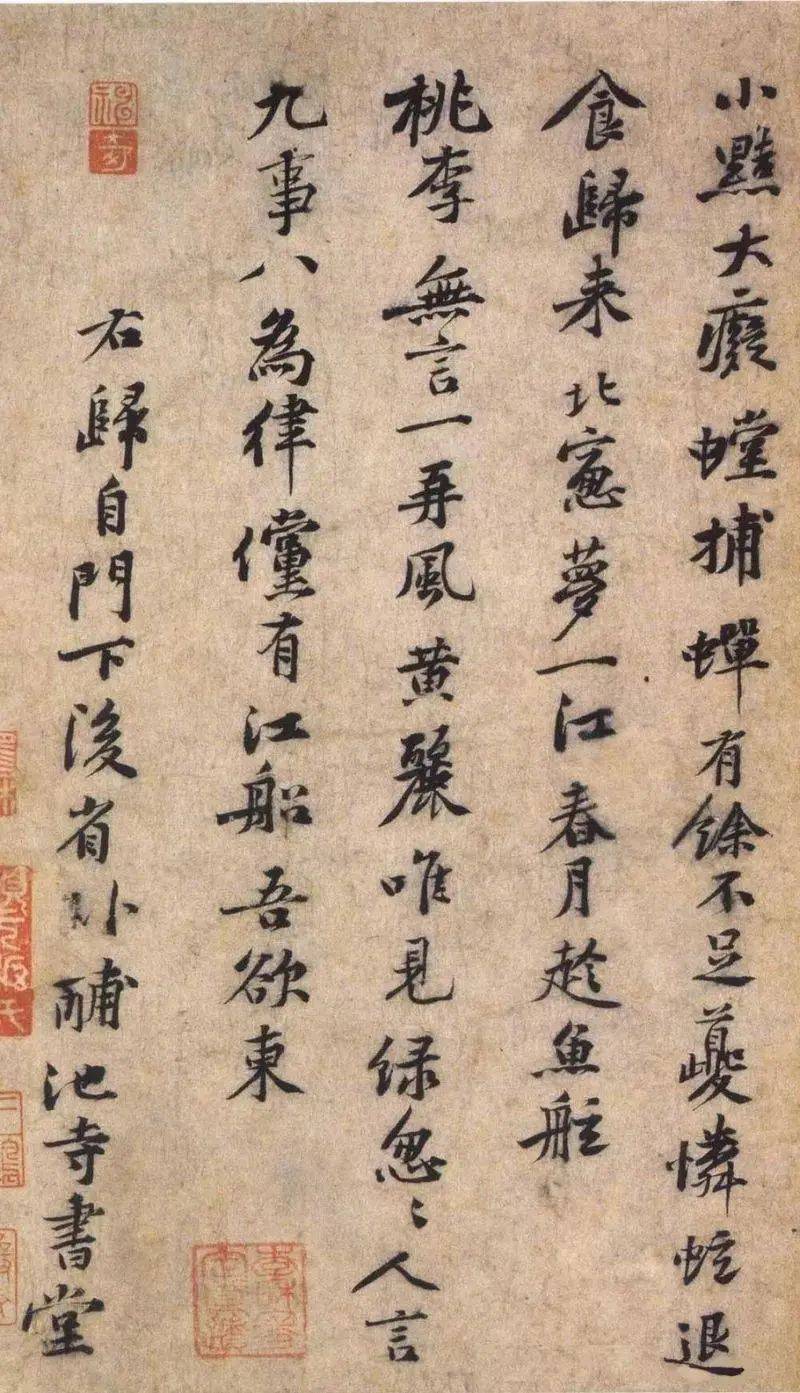 小黠大癡螳捕蟬有餘不足夔憐蚿退
食歸来北窻夢一江春月趁魚船
桃李無言一再風黄麗唯見緑怱〻人言
九事八為律儻有江船吾欲東
右歸自門下後省卧酺池寺書堂